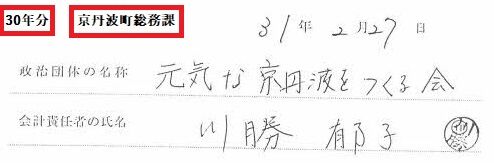 30年分 京丹波町総務課
31年2月27日
政治団体の名称 元気な京丹波をつくる会
会計責任者の氏名 川勝 郁子